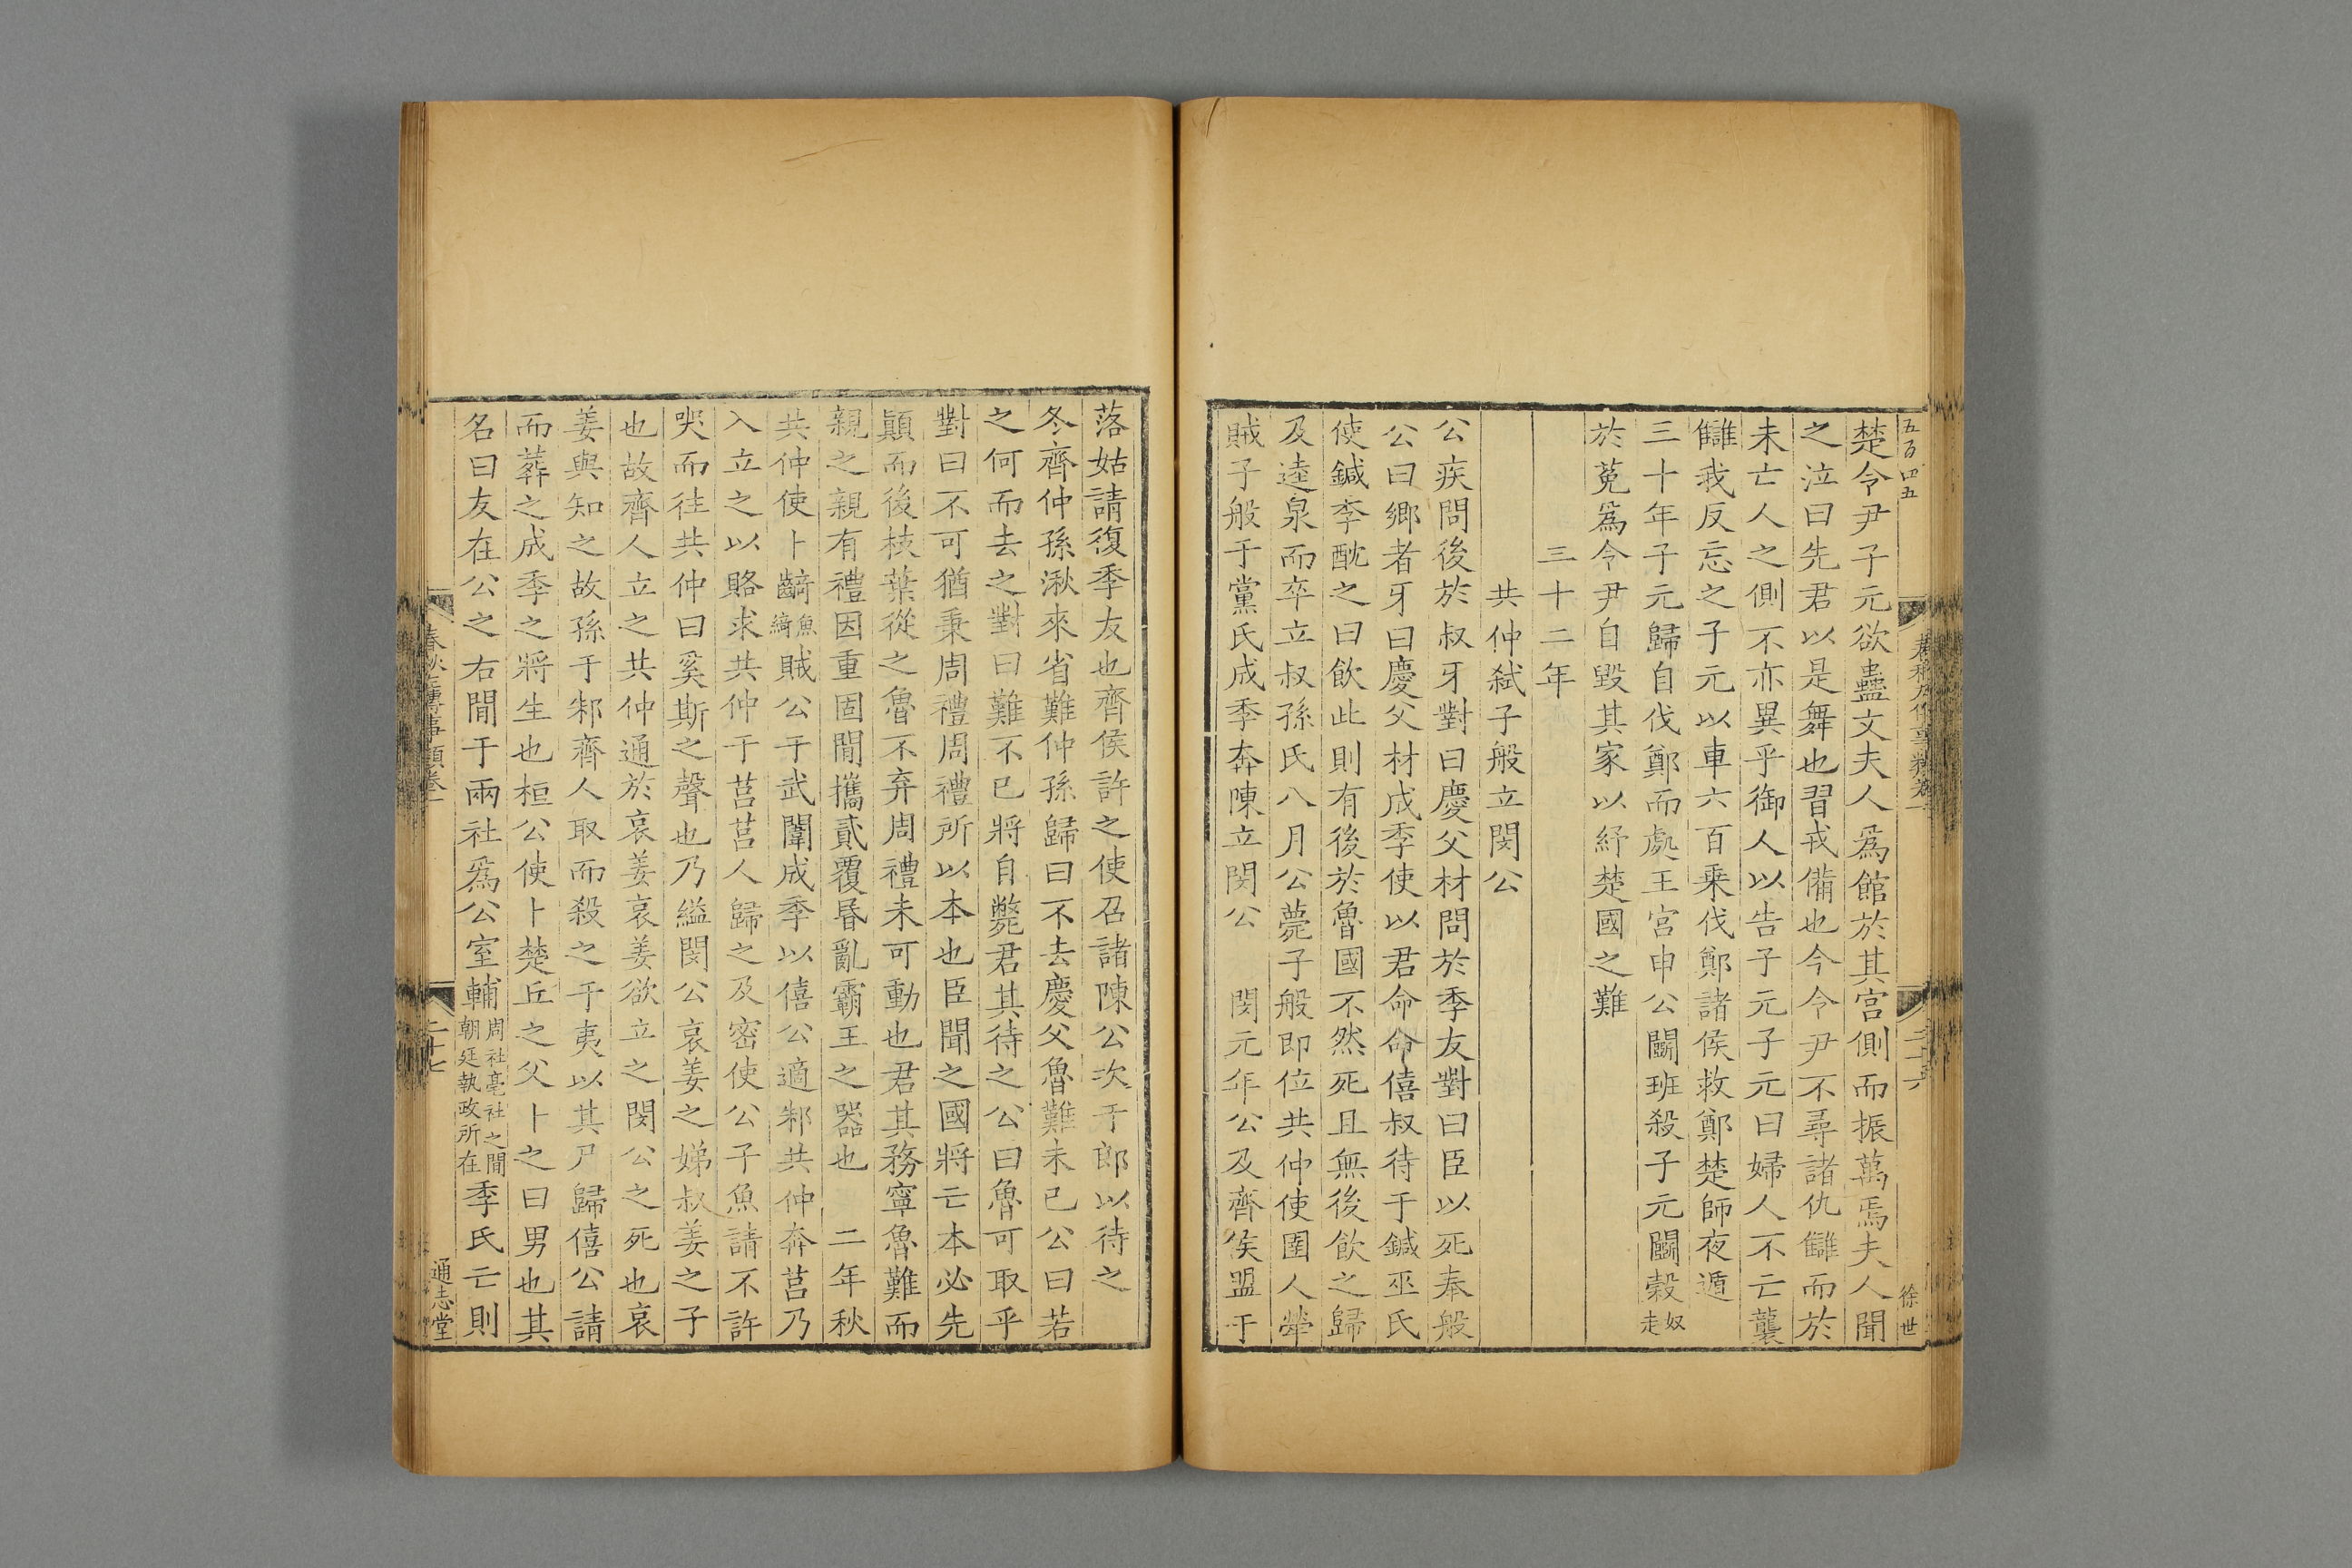 五百四五
徐世
楚令尹子元欲蠱文夫人爲館於其宮側而振萬焉夫人聞
之泣曰先君以是舞也習戎備也今令尹不尋諸仇讎而於
未亡人之側不亦異乎御人以告子元子元曰婦人不亡襲
讎我反忘之子元以車六百乗伐鄭諸侯救鄭楚師夜遁
三十年子元歸自伐鄭而處王宮申公鬭班殺子元鬭穀奴走
於菟爲令尹自毀其家以紓楚國之難
三十二年
共仲弑子般立閔公
公疾問後於叔牙對曰慶父材問於季友對曰臣以死奉般
公曰鄉者牙曰慶父材成季使以君命命僖叔待于鍼巫氏
使鍼季酖之曰飲此則有後於魯國不然死且無後飲之歸
及逵泉而卒立叔孫氏八月公薨子般即位共仲使圉人犖
賊子般于黨氏成季奔陳立閔公　閔元年公及齊侯盟于
落姑請復季友也齊侯許之使召諸陳公次于郎以待之
冬齊仲孫湫來省難仲孫歸曰不去慶父魯難未已公曰若
之何而去之對曰難不已將自斃君其待之公曰魯可取乎
對曰不可猶秉周禮周禮所以本也臣聞之國將亡本必先
顚而後枝葉從之魯不弃周禮未可動也君其務寧魯難而
親之親有禮因重固閒攜貳覆昏亂霸王之器也　二年秋
共仲使卜齮魚綺賊公于武闈成季以僖公適邾共仲奔莒乃
入立之以賂求共仲于莒莒人歸之及密使公子魚請不許
哭而往共仲曰奚斯之聲也乃縊閔公哀姜之娣叔姜之子
也故齊人立之共仲通於哀姜哀姜欲立之閔公之死也哀
姜與知之故孫于邾齊人取而殺之于夷以其尸歸僖公請
而葬之成季之將生也桓公使卜楚丘之父卜之曰男也其
名曰友在公之右閒于兩社爲公室輔周社亳社之閒朝廷執政所在季氏亡則
春秋左傳事類卷一
二十七
通志堂